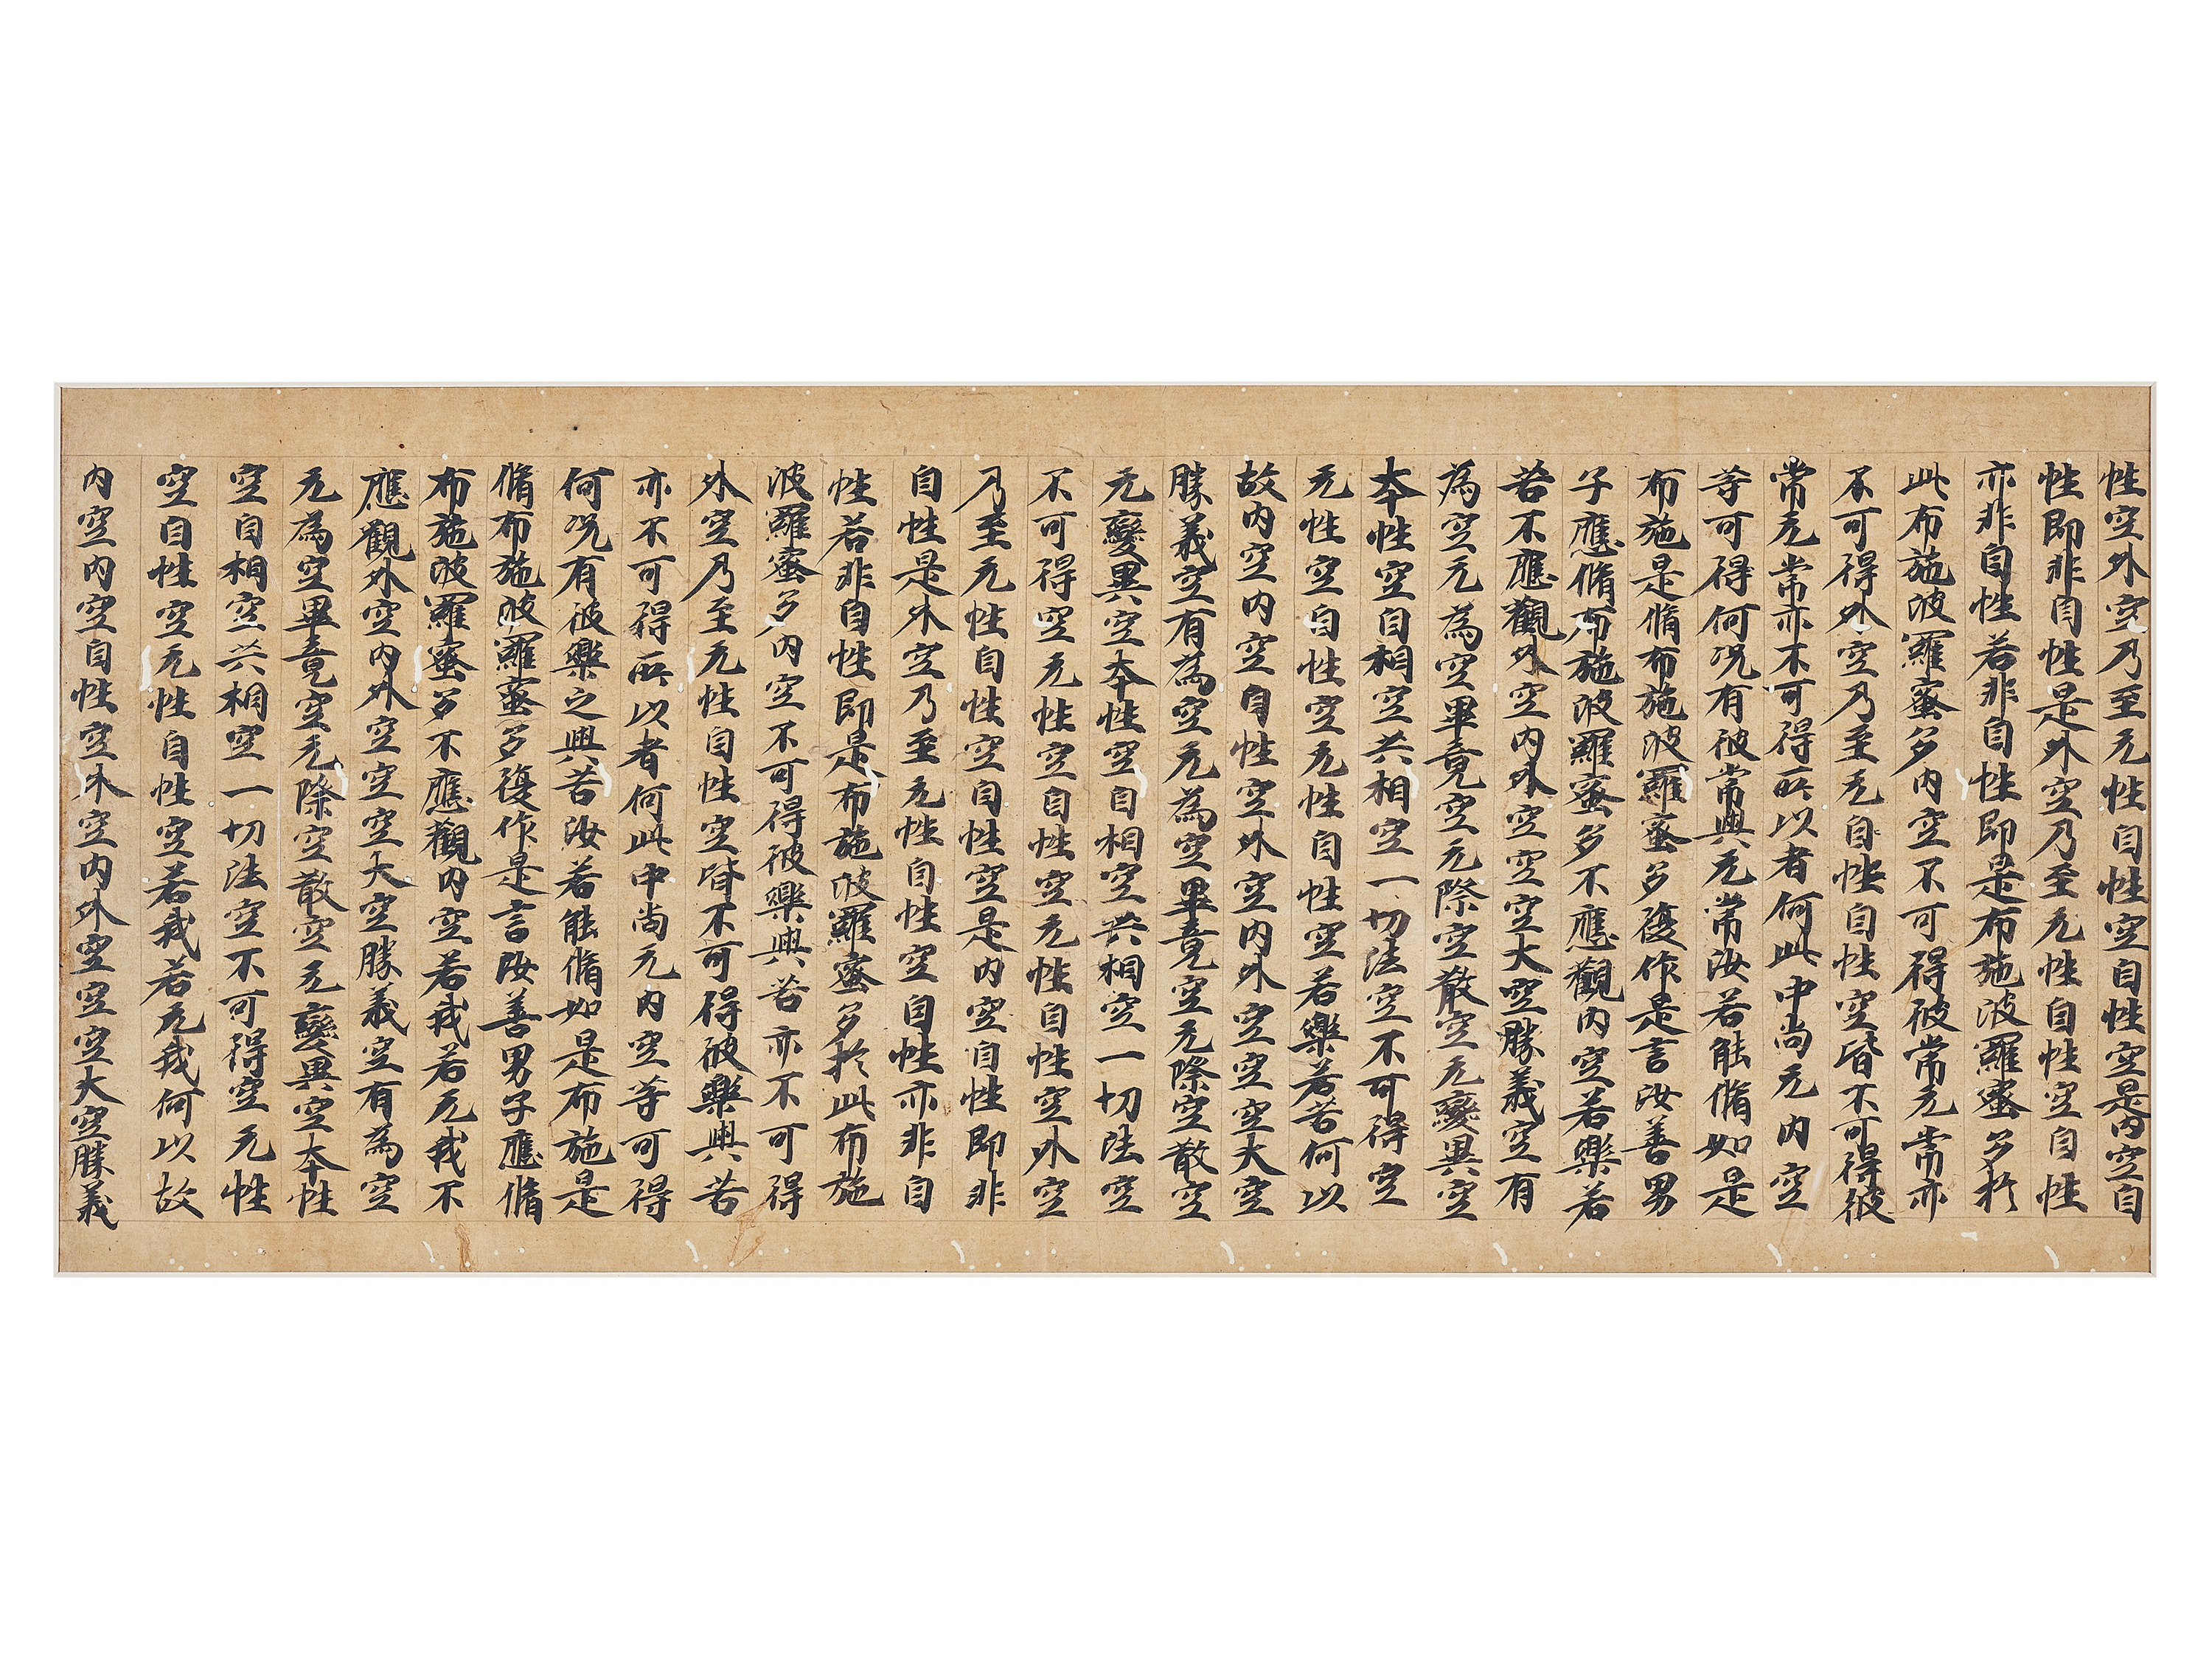 性空外空乃至无性自性空自性空是内空自
性即非自性是外空乃至无性自性空自性
亦非自性若非自性即是布施波羅蜜多於
此布施波羅蜜多内空不可得彼常无常亦
不可得外空乃至无自性自性空皆不可得彼
常无常亦不可得所以者何此中尚无内空
等可得何況有彼常與无常汝若能脩如是
布施是脩布施波羅蜜多復作是言汝善男
子應脩布施波羅蜜多不應觀内空若樂若
苦不應觀外空内外空空空大空勝義空有
為空无為空畢竟空无際空散空无變異空
本性空自相空共相空一切法空不可得空
无性空自性空无性自性空若樂若苦何以
故内空内空自性空外空内外空空空大空
勝義空有為空无為空畢竟空无際空散空
无變異空本性空自相空共相空一切法空
不可得空无性空自性空无性自性空外空
乃至无性自性空自性空是内空自性即非
自性是外空乃至无性自性空自性亦非自
性若非自性即是布施波羅蜜多於此布施
波羅蜜多内空不可得彼樂與苦亦不可得
外空乃至无性自性空皆不可得彼樂與苦
亦不可得所以者何此中尚无内空等可得
何況有彼樂之與苦汝若能脩如是布施是
脩布施波羅蜜多復作是言汝善男子應脩
布施波羅蜜多不應觀内空若我若无我不
應觀外空内外空空空大空勝義空有為空
无為空畢竟空无際空散空无變異空本性
空自相空共相空一切法空不可得空无性
空自性空无性自性空若我若无我何以故
内空内空自性空外空内外空空空大空勝義